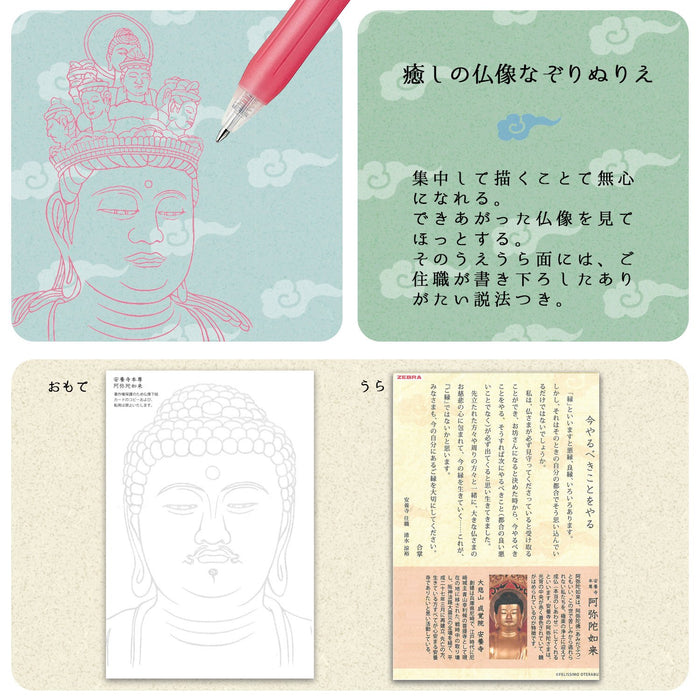 癒しの仏像なぞりぬりえ
集中して描くことで無心
になれる。
できあがった仏像を見て
ほっとする。
そのうえうら面には、ご
住職が書き下ろしたあり
がたい説法つき。
おもて
安養寺本尊
阿弥陀如来
うら
ZEBRA
今やるべきことをやる
「縁」といいますと悪縁、良縁、いろいろあります。
しかし、それはそのときの自分の都合でそう思い込んでい
るだけではないでしょうか。
私は、仏さまが必ず見守ってくださっていると受け取る
ことができ、お坊さんになると決めた時から、今やるべき
ことをやる、そうすれば次にやるべきこと(都合の良い悪
いことでなく)が必ず出てくると思い生きてきました。
先立たれた方々や周りの方々と一緒に、大きな仏さまの
お慈悲の心に包まれて、今の縁を生きていく……これが、
ご縁ではないかと思います。
みなさまも、今の自分にあるご縁を大切にしてください。
合掌
安養寺 住職 清水
安養寺
本尊
阿弥陀如来
大慈山 成覚院 安養寺
©FELISSIMO OTERABU